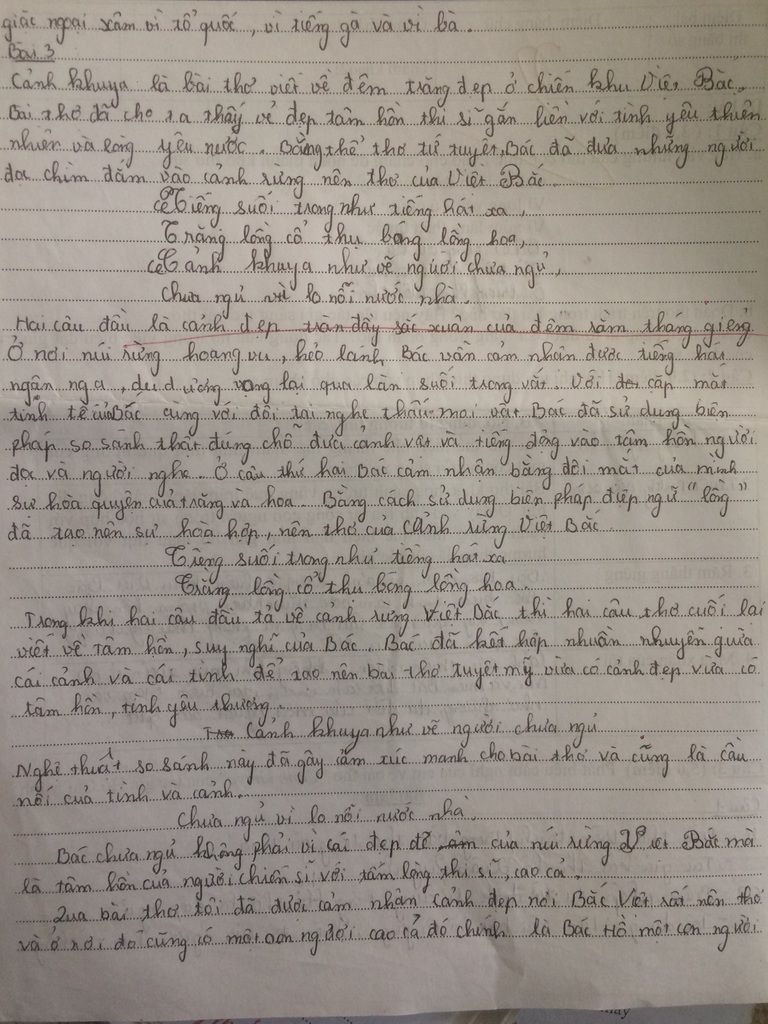 giặc ngoại xâm vì tổ quốc, vì tiếng gà và vì bà.
Bài 3
Cảnh khuya là bài thơ viết về đêm trăng đẹp ở chiến khu Việt Bắc.
Bài thơ đã cho ta thấy vẻ đẹp tâm hồn thi sĩ gắn liền với tình yêu thiên
nhiên và lòng yêu nước. Bằng thể thơ tứ tuyệt, Bác đã đưa những người
đọc chìm đắm vào cảnh rừng nên thơ của Việt Bắc.
"Tiếng suối trong như tiếng hát xa,
Trăng lồng cổ thụ bóng lồng hoa,
"Cảnh khuya như vẽ người chưa ngủ,
Chưa ngủ vì lo nỗi nước nhà.
Hai câu đầu là cảnh đẹp tràn đầy sắc xuân của đêm rằm tháng giêng
Ở nơi núi rừng hoang vu, hẻo lánh Bác vẫn cảm nhận được tiếng hát
ngân nga, du dương vọng lại qua làn suối trong vắt. Với cặp mắt
tinh tế của Bác cùng với đôi tai nghe thấu mọi vật Bác đã sử dụng biện
pháp so sánh thật đúng chỗ đưa cảnh vật và tiếng động vào tâm hồn người
đọc và người nghe. Ở câu thứ hai Bác cảm nhận bằng đôi mắt của mình
sự hòa quyện của trăng và hoa. Bằng cách sử dụng biện pháp điệp ngữ "lồng"
đã tạo nên sự hoà hợp, nên thơ của cảnh rừng Việt Bắc.
Tiếng suối trong như tiếng hát xa
Trăng lồng cổ thụ bóng lồng hoa.
Trong khi hai câu đầu tả về cảnh rừng Việt Bắc thì hai câu thơ cuối lại
viết về tâm hồn, suy nghĩ của Bác. Bác đã kết hợp nhuần nhuyễn giữa
cái cảnh và cái tình để tạo nên bài thơ tuyệt mỹ vừa có cảnh đẹp vừa có
tâm hồn, tình yêu thương.
Cảnh khuya như vẽ người chưa ngủ
Nghệ thuật so sánh này đã gây cảm xúc mạnh cho bài thơ và cũng là cầu
nối của tình và cảnh.
Chưa ngủ vì lo nỗi nước nhà.
Bác chưa ngủ không phải vì cái đẹp đỡ của núi rừng Việt Bắc mà
là tâm hồn của người chiến sĩ với tấm lòng thi sĩ, cao cả.
Qua bài thơ tôi đã được cảm nhận cảnh đẹp nơi Bắc Việt rất nên thơ
và ở nơi đó cũng có một con người cao cả đó chính là Bác Hồ một con người